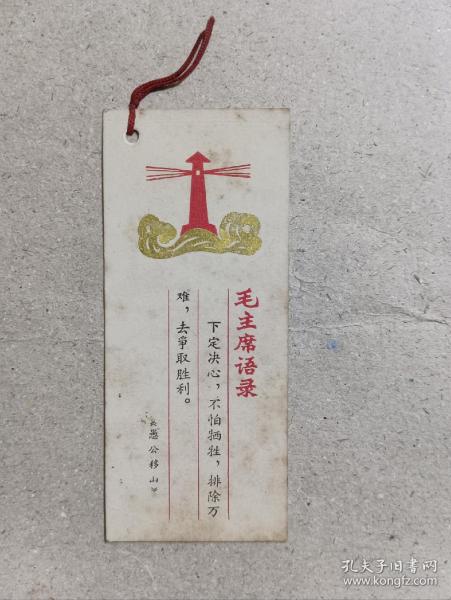 毛主席语录
下定决心，不怕牺牲，排除万
难，去争取胜利。
《愚公移山》
孔夫子旧书网
www.kongfz.com